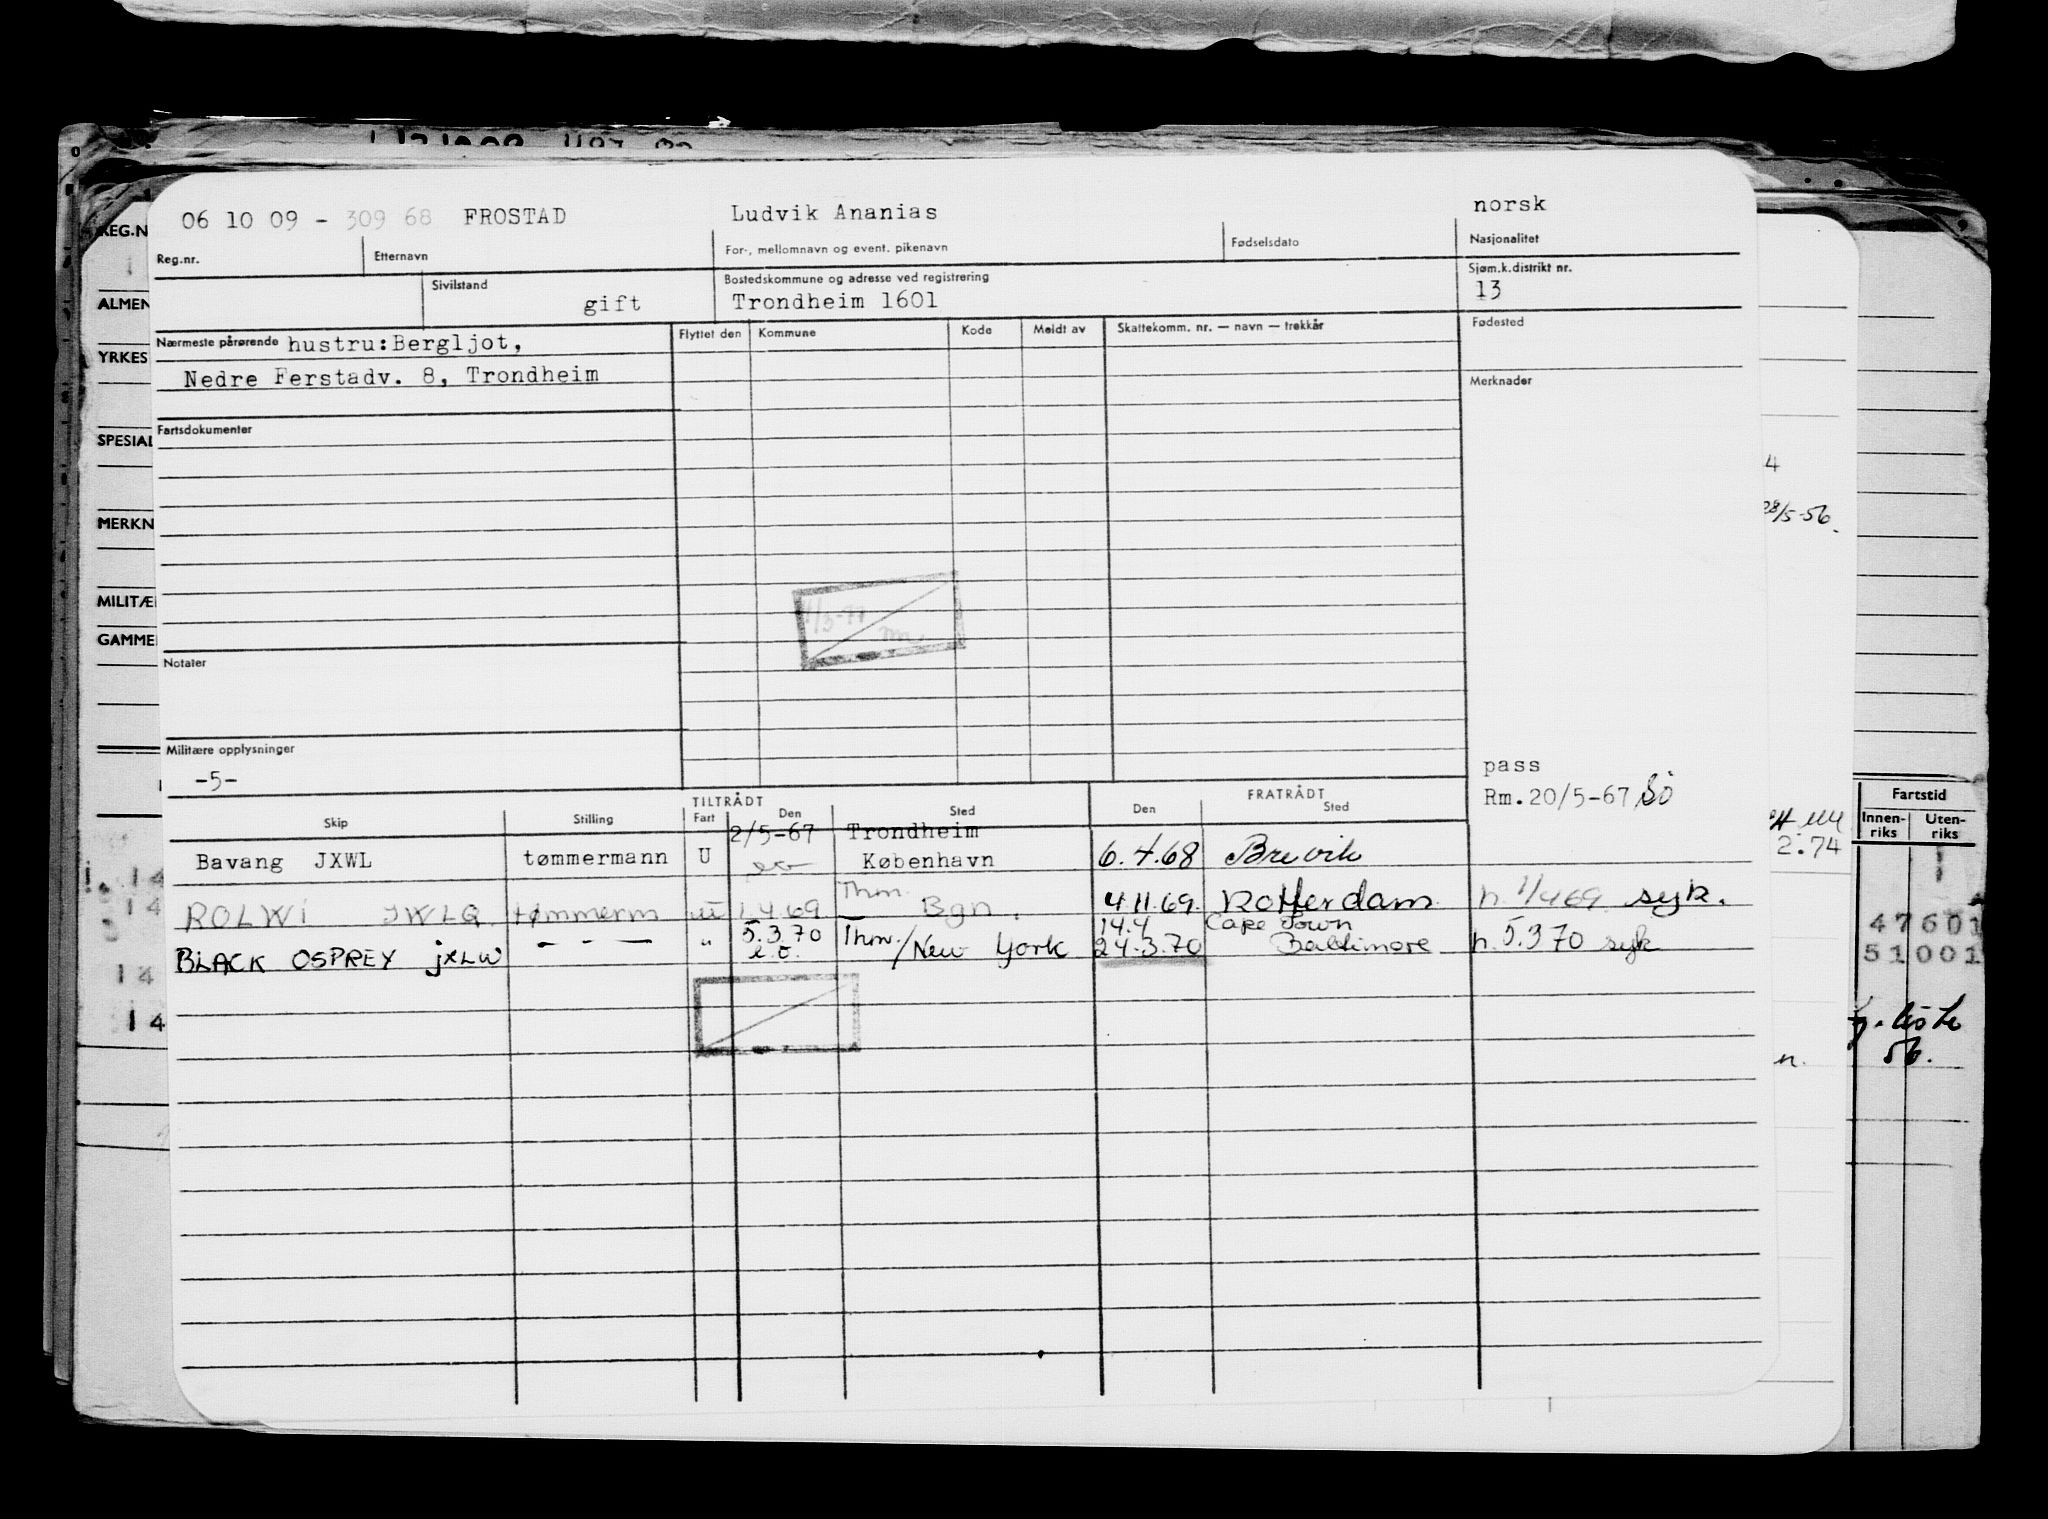 REG.N
ALMEN
YRKES
SPESIAL
MERKN
MILITÆ
GAMME
06 10 09 - 309 68 FROSTAD Ludvik Ananias norsk
Reg.nr. Etternavn For-, mellomnavn og event. pikenavn Fødselsdato Nasjonalitet
Sivilstand Bostedskommune og adresse ved registrering Sjøm.k.distrikt nr.
gift Trondheim 1601 13
Nærmeste pårørende hustru:Bergljot, Flyttet den Kommune Kode Meldt av Skattekomm. nr. — navn — trekkår Fødested
Nedre Ferstadv. 8, Trondheim Merknader
Fartsdokumenter
4
28/5-56.
1/3-77
Notater
Militære opplysninger
-5-
pass
Rm.20/5-67 Sö
TILTRÅDT FRATRÅDT
Skip Stilling Fart Den Sted Den Sted
2/5-67 Trondheim
Bavang JXWL tømmermann U København 6.4.68 Brevik
Thm.
ROLWI JWLQ tømmerm U 1.4.69 - Bgn. 4.11.69. Rotterdam h. 1/4 69. syk.
5.3.70 Thm. 14.4 Cape Town
BLACK OSPREY jXLW - - - " e.o. /New York 24.3.70 Baltimore h. 5.3 70 syk
Fartstid
Innen-riks Uten-riks
2.74
14
14
14
14
47601
51001
56.
n.